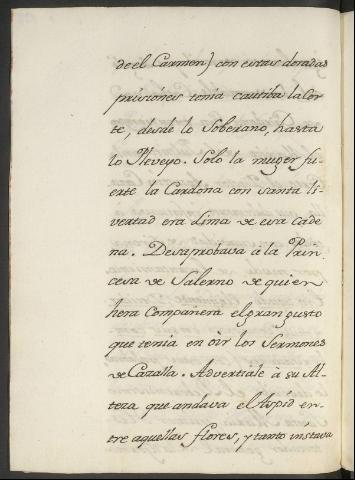 de el Carmen) con estas doradas
prisiónes tenia cautiba la Cor
te, desde lo Soberano, hasta
lo Pleveyo. Solo la muger fu-
erte la Cardona con santa li-
vertad era Lima de esa cade
na. Desaprobava á la Prin
cesa de Salerno de quien
hera Compañera el gran gusto
que tenia en oir los Sermones
de Cazalla. Advertiale à su Al-
teza que andava el Aspid en-
tre aquellas flores, y tanto instava